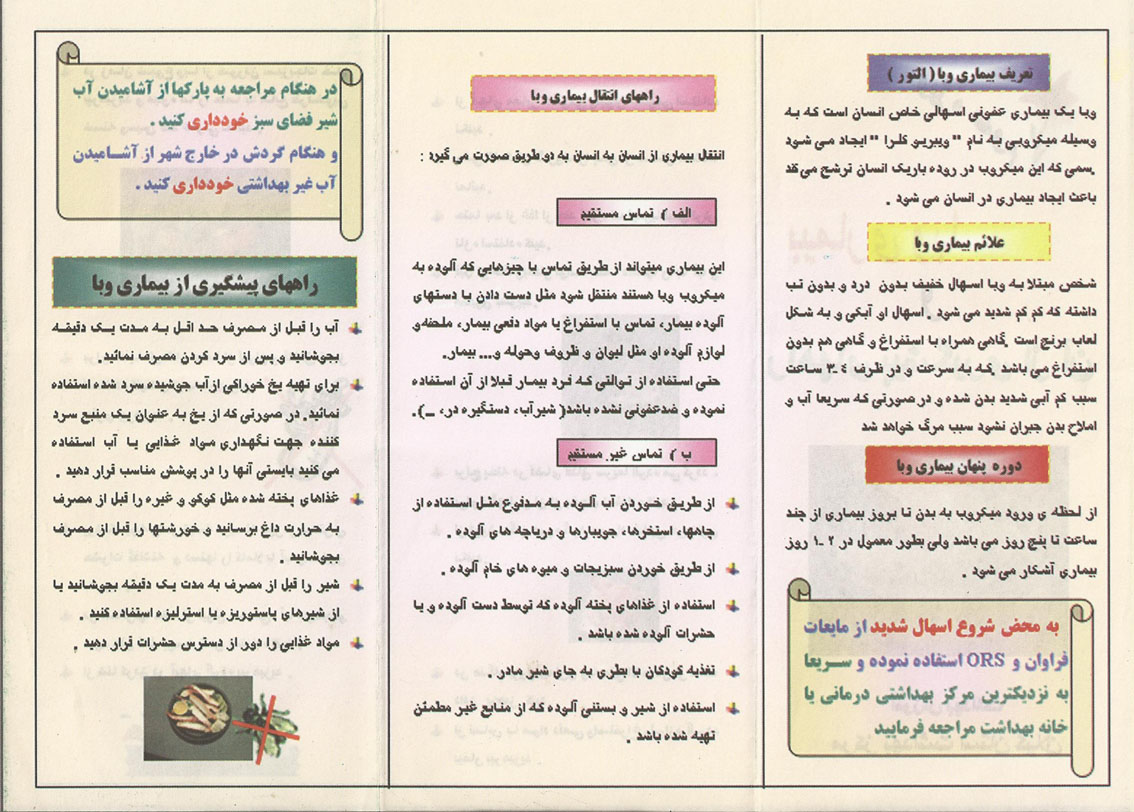 تعریف بیماری وبا ( التور )
وبا یک بیماری عفونی اسهالی خاص انسان است که به
وسیله میکروبی به نام " ویبریو کلرا " ایجاد می شود
.سمی که این میکروب در روده باریک انسان ترشح می کند
باعث ایجاد بیماری در انسان می شود .
علائم بیماری وبا
شخص مبتلا به وبا اسهال خفیف بدون درد و بدون تب
داشته که کم کم شدید می شود . اسهال او آبکی و به شکل
لعاب برنج است .گاهی همراه با استفراغ و گاهی هم بدون
استفراغ می باشد .که به سرعت و در ظرف ٤ـ٣ ساعت
سبب کم آبی شدید بدن شده و در صورتی که سریعا آب و
املاح بدن جبران نشود سبب مرگ خواهد شد
دوره پنهان بیماری وبا
از لحظه ی ورود میکروب به بدن تا بروز بیماری از چند
ساعت تا پنج روز می باشد ولی بطور معمول در ٢ ـ١ روز
بیماری آشکار می شود .
به محض شروع اسهال شدید از مایعات
فراوان و ORS استفاده نموده و سریعا
به نزدیکترین مرکز بهداشتی درمانی یا
خانه بهداشت مراجعه فرمایید
راههای انتقال بیماری وبا
انتقال بیماری از انسان به انسان به دو طریق صورت می گیرد :
الف ) تماس مستقیم
این بیماری میتواند از طریق تماس با چیزهایی که آلوده به
میکروب وبا هستند منتقل شود مثل دست دادن با دستهای
آلوده بیمار، تماس با استفراغ یا مواد دفعی بیمار، ملحفه و
لوازم آلوده او مثل لیوان و ظروف وحوله و... بیمار.
حتی استفاده از توالتی که فرد بیمار قبلا از آن استفاده
نموده و ضدعفونی نشده باشد( شیرآب، دستگیره در، ...).
ب ) تماس غیر مستقیم
از طریق خوردن آب آلوده به مدفوع مثل استفاده از
چاهها، استخرها، جویبارها و دریاچه های آلوده .
از طریق خوردن سبزیجات و میوه های خام آلوده .
استفاده از غذاهای پخته آلوده که توسط دست آلوده و یا
حشرات آلوده شده باشد .
تغذیه کودکان با بطری به جای شیر مادر .
استفاده از شیر و بستنی آلوده که از منابع غیر مطمئن
تهیه شده باشد .
در هنگام مراجعه به پارکها از آشامیدن آب
شیر فضای سبز خودداری کنید .
و هنگام گردش در خارج شهر از آشامیدن
آب غیر بهداشتی خودداری کنید .
راههای پیشگیری از بیماری وبا
آب را قبل از مصرف حد اقل به مدت یک دقیقه
بجوشانید و پس از سرد کردن مصرف نمائید.
برای تهیه یخ خوراکی ازآب جوشیده سرد شده استفاده
نمائید. در صورتی که از یخ به عنوان یک منبع سرد
کننده جهت نگهداری مواد غذایی یا آب استفاده
می کنید بایستی آنها را در پوشش مناسب قرار دهید .
غذاهای پخته شده مثل کوکو و غیره را قبل از مصرف
به حرارت داغ برسانید و خورشتها را قبل از مصرف
بجوشانید .
شیر را قبل از مصرف به مدت یک دقیقه بجوشانید یا
از شیرهای پاستوریزه یا استرلیزه استفاده کنید .
مواد غذایی را دور از دسترس حشرات قرار دهید .